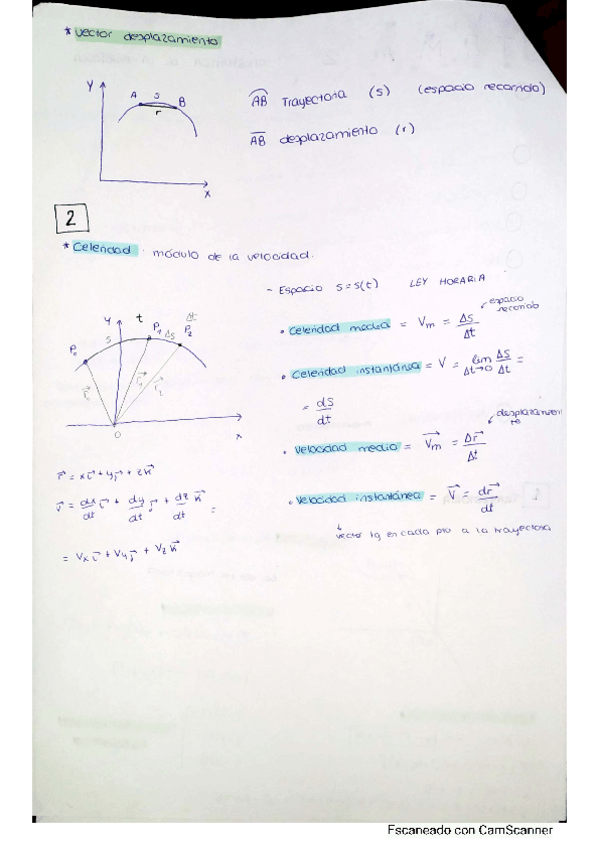 * Vector desplazamiento
Y
A S B
r
X
AB Trayectoria (s) (espacio recorrido)
AB desplazamiento (r)
2
* Celeridad módulo de la velocidad.
- Espacio S = S(t) LEY HORARIA
y t Δt
P₀ S P₁ ΔS P₂
r⃗₁ r⃗₂
O x
espacio recorrido
• Celeridad media = Vm = ΔS/Δt
• Celeridad instantánea = V = lim Δt→0 ΔS/Δt =
= dS/dt
desplazamiente
• Velocidad media = V⃗m = Δr⃗/Δt
• Velocidad instantánea = V⃗ = dr⃗/dt
vector tg en cada pto a la trayectoria
r⃗ = xi⃗ + yj⃗ + zk⃗
v⃗ = dx/dt i⃗ + dy/dt j⃗ + dz/dt k⃗ =
= Vx i⃗ + Vy j⃗ + Vz k⃗
Escaneado con CamScanner